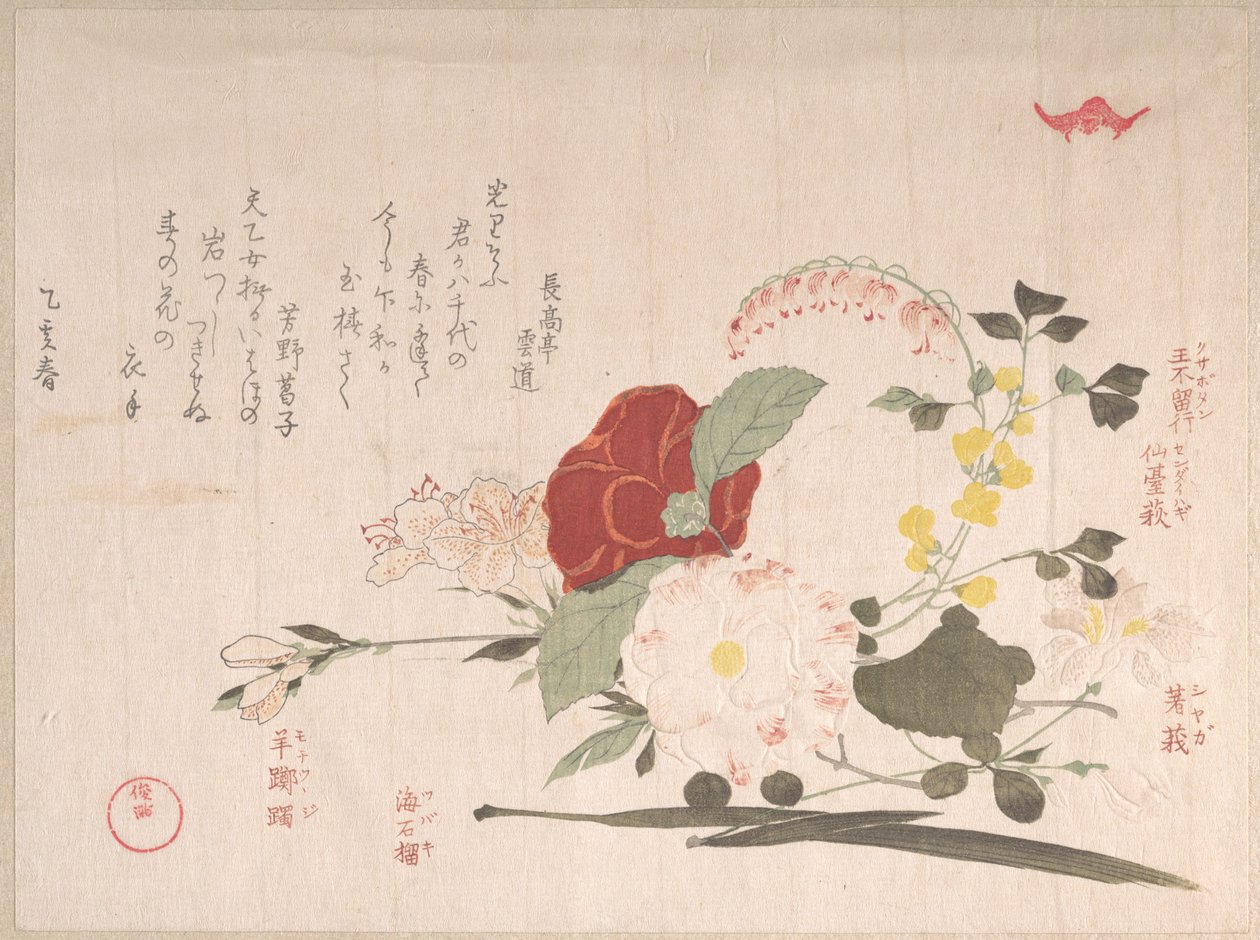 クサボタン
王不留行
センダイハギ
仙臺萩
シヤガ
著莪
長高亭
雲道
光りそふ
君か八千代の
春に逢て
今も卞和か
玉椿さく
天乙女撫るいはほの
岩つゝし
つきせぬ
春の花の
衣手
乙亥春
ツバキ
海石榴
モチツヽジ
羊躑躅
俊満